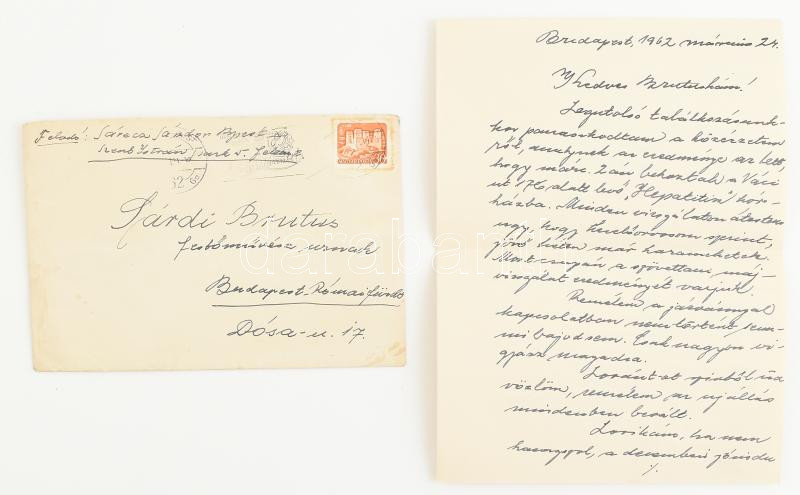 Feladó: Sáreca Sándor Bpest
Szent István park
Sárdi Brutus
festőművész urnak
Budapest-Rómaifürdő
Dósa-u. 17.
Budapest, 1962 március 24.
Kedves Brutuskám!
Legutolsó találkozásunk-
kor panaszkodtam a közérzetem-
ről, amelynek az eredménye az lett,
hogy márc. 2-án behoztak a Váci
út 176 alatt levő "Hepatitis" kór-
házba. Minden vizsgálaton átestem
ugy, hogy kezelőorvosom szerint,
jövő héten már hazamehetek.
Most csupán a szövettani, máj-
vizsgálat eredményét várjuk.
Remélem a járvánnyal
kapcsolatban nem történt sem-
mi bajod sem. Csak nagyon vi-
gyázz magadra.
Lorántot szivből üd-
vözlöm, remélem az ujállás
mindenben bevált.
ha nem
haragszol, a decemberi
/.
darabanth